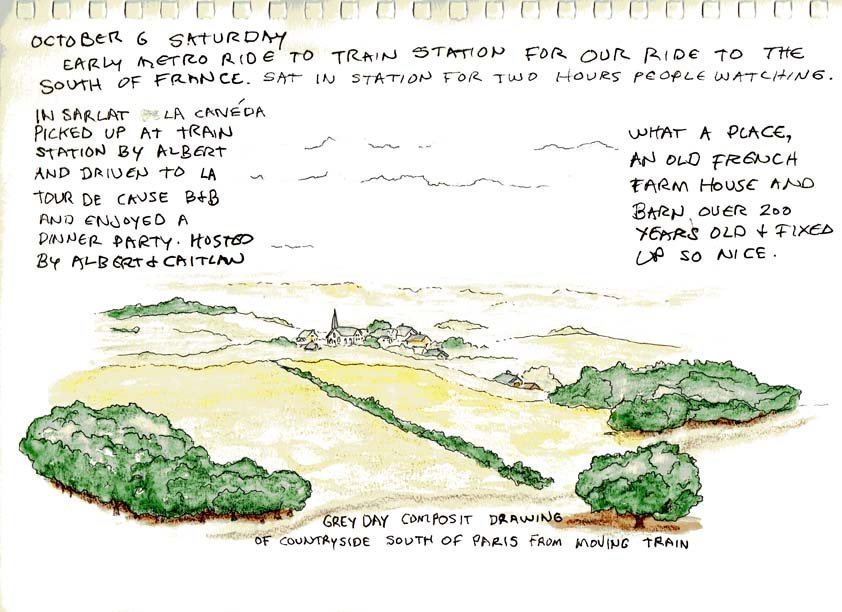 OCTOBER 6 SATURDAY
EARLY METRO RIDE TO TRAIN STATION FOR OUR RIDE TO THE
SOUTH OF FRANCE. SAT IN STATION FOR TWO HOURS PEOPLE WATCHING.
IN SARLAT LA CANÉDA
PICKED UP AT TRAIN
STATION BY ALBERT
AND DRIVEN TO LA
TOUR DE CAUSE B&B
AND ENJOYED A
DINNER PARTY. HOSTED
BY ALBERT & CAITLAN
WHAT A PLACE,
AN OLD FRENCH
FARM HOUSE AND
BARN OVER 200
YEARS OLD & FIXED
UP SO NICE.
GREY DAY COMPOSIT DRAWING
OF COUNTRYSIDE SOUTH OF PARIS FROM MOVING TRAIN